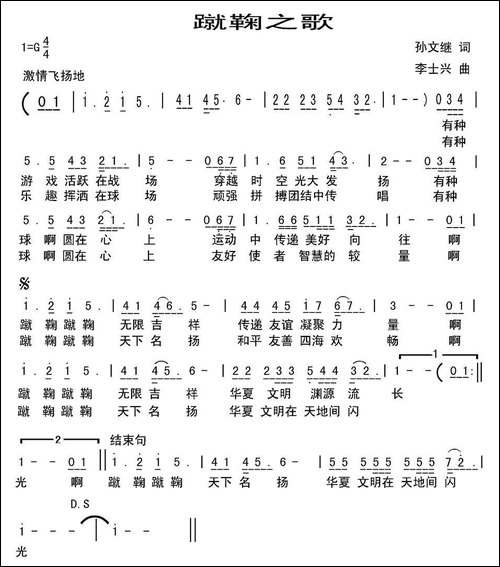 蹴鞠之歌
1=G 4/4
孙文继 词
激情飞扬地
李士兴 曲
( 0 1 | i. 2 i 5. | 4 1 4 5. 6 - | 2 2 2 3 5 4 3 2. | 1 - - ) 0 3 4 |
有种
有种
5. 5 4 3 2 1. | 5 - - 0 6 7 | 1. 6 5 1 4 3. | 2 - - 0 3 4 |
游 戏 活跃 在战 场 穿越 时 空 光大 发 扬 有种
乐 趣 挥洒 在球 场 顽强 拼 搏团结中传 唱 有种
5. 5 4 3 2 1. | 6 - - 0 6 7 | 1. 6 6 5 1 1 3 2. | 1 - - 0 1 |
球 啊 圆在 心 上 运动 中 传递 美好 向 往 啊
球 啊 圆在 心 上 友好 使 者 智慧的 较 量 啊
i. 2 i 5. | 4 1 4 6. 5 - | 4 4 4 5 1 7 6 7. | 3 - - 0 1 |
蹴 鞠 蹴 鞠 无限 吉 祥 传递 友谊 凝聚 力 量 啊
蹴 鞠 蹴 鞠 天下 名 扬 和平 友善 四海 欢 畅 啊
1
i. 2 i 5. | 4 1 4 5. 6 - | 5 5 5 5 5 5 4 3 2. | 1 - - ( 0 1 :‖
蹴 鞠 蹴 鞠 无限 吉 祥 华夏 文明 渊源 流 长
蹴 鞠 蹴 鞠 天下 名 扬 华夏 文明在 天地间 闪
2 结束句
i - - 0 1 ‖ i. 2 i 5. | 4 1 4 5. 6 - | 5 5 5 5 5 5 5 5 7 2. |
光 啊 蹴 鞠 蹴 鞠 天下 名 扬 华夏 文明在 天地间 闪
D.S
i - - | i - - ‖
光